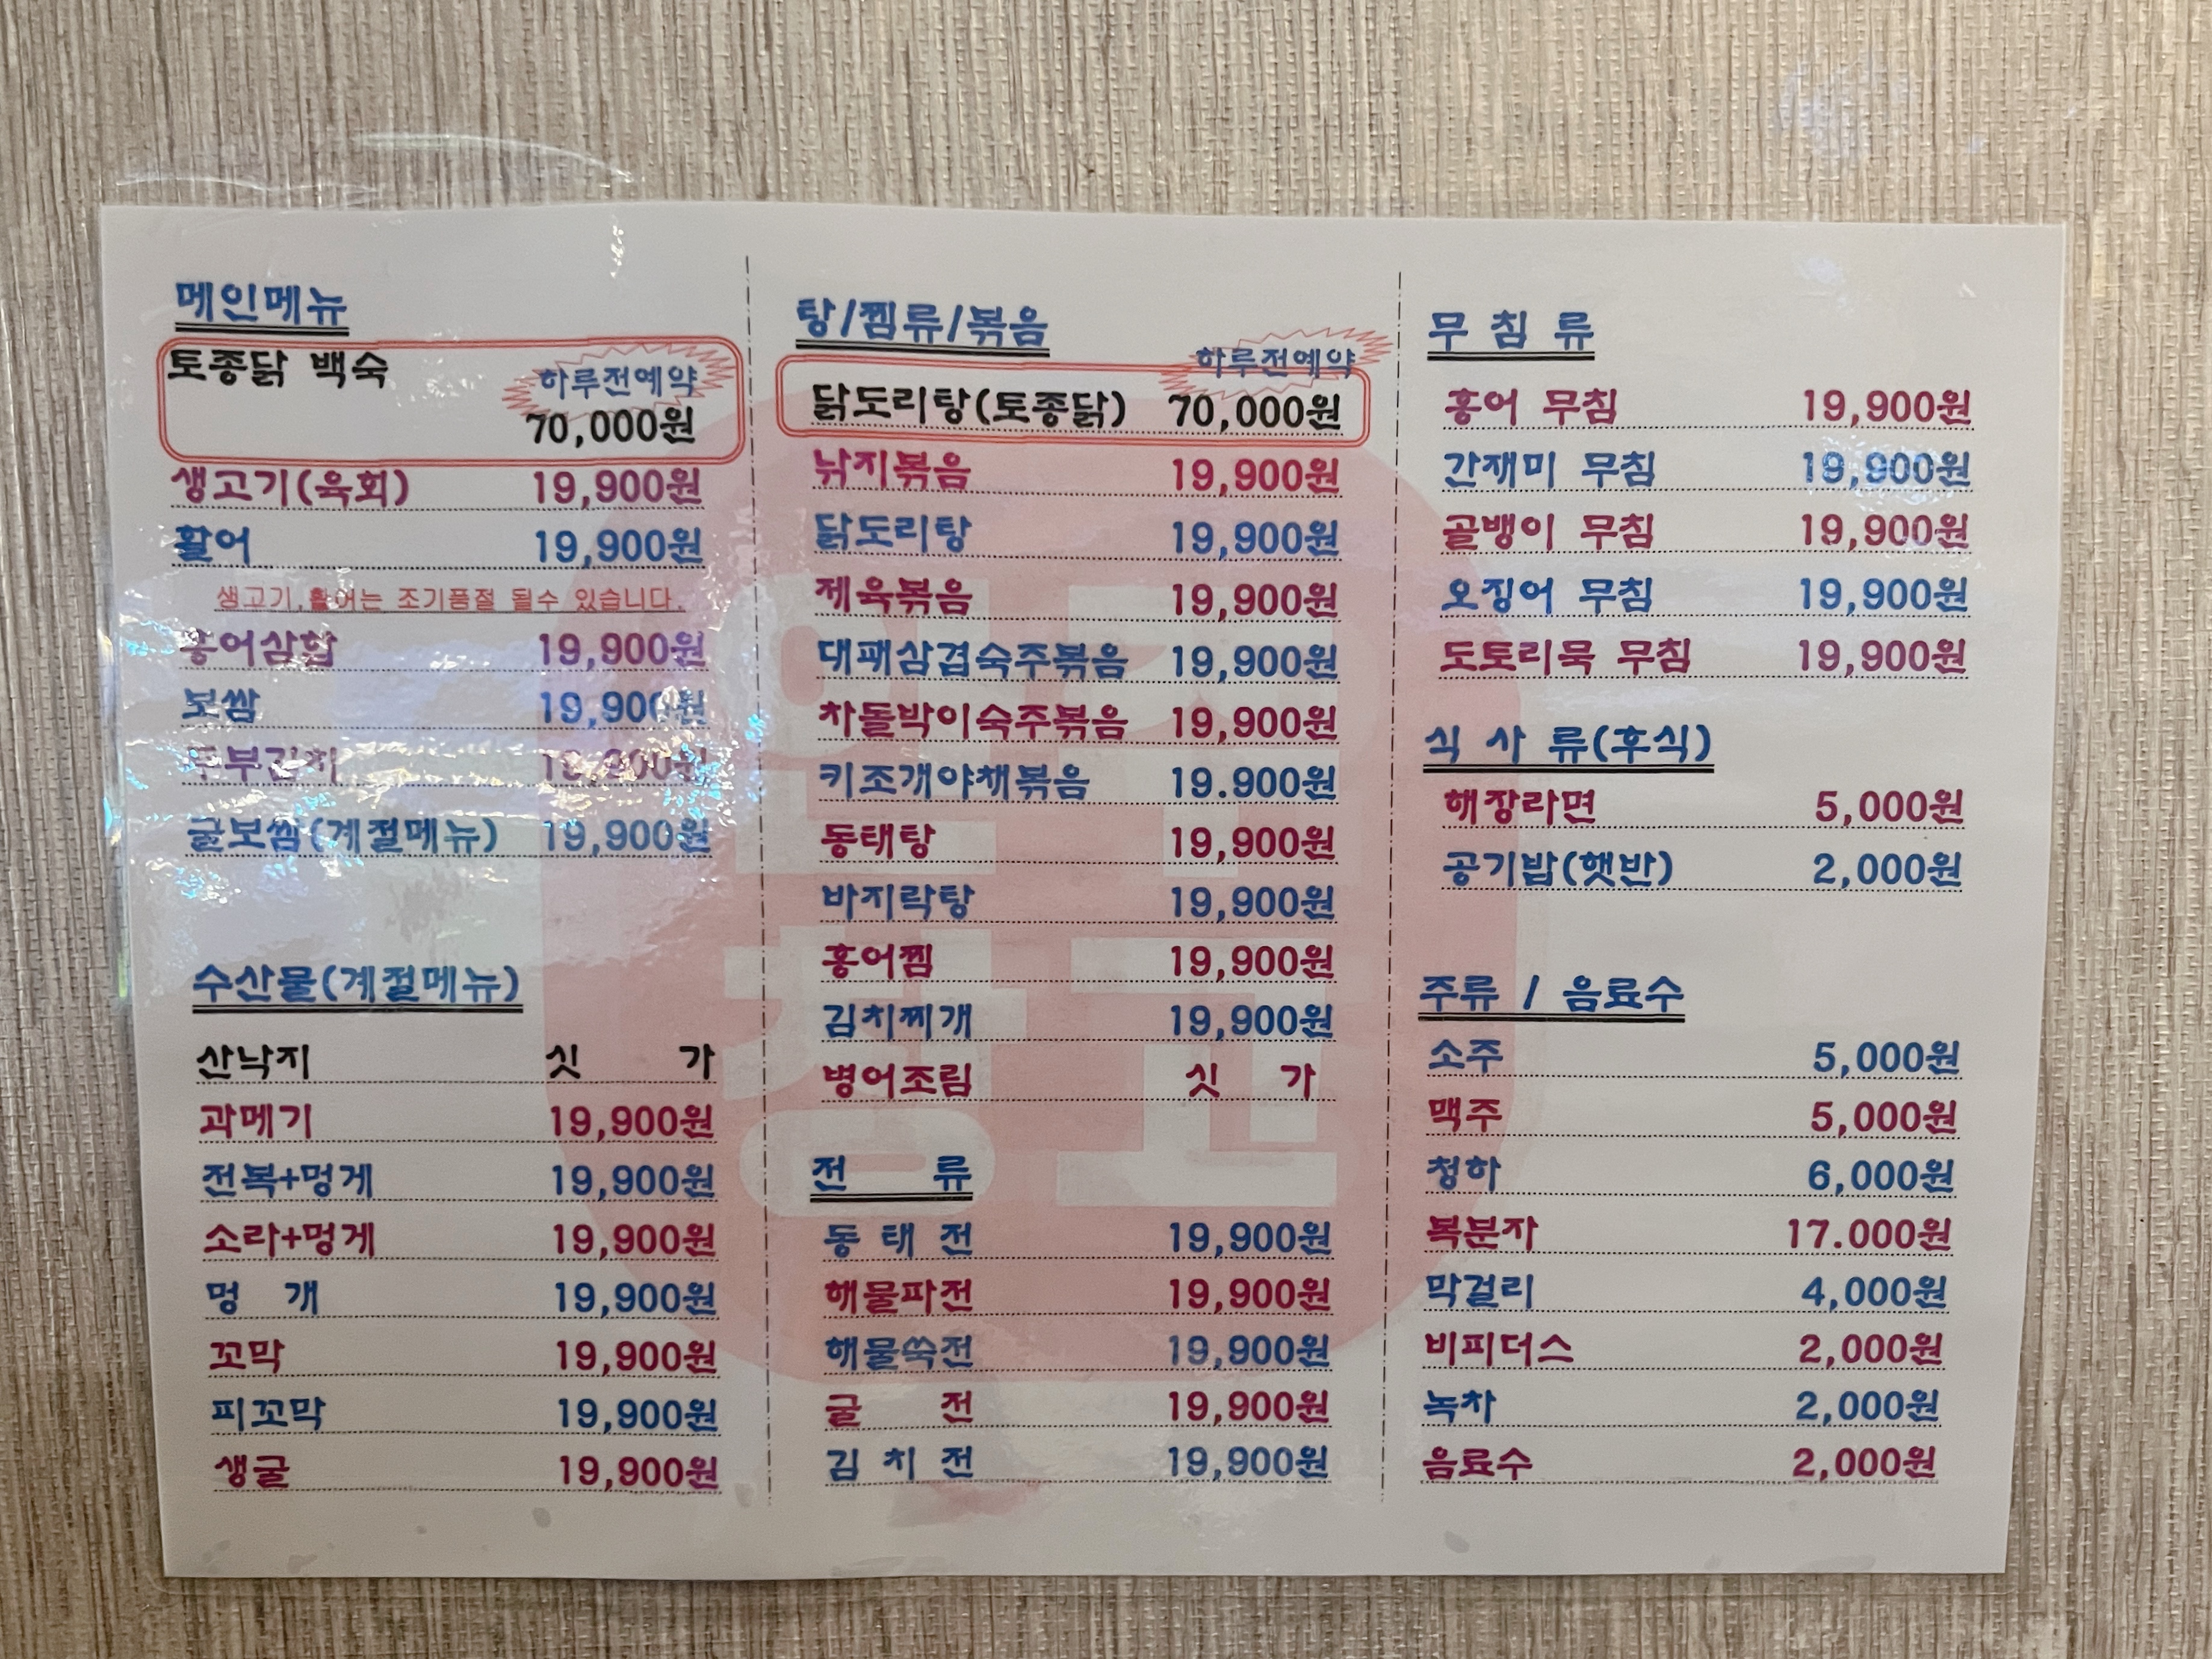 메인메뉴
토종닭 백숙
하루전예약
70,000원
생고기(육회) 19,900원
활어 19,900원
생고기,활어는 조기품절 될수 있습니다.
홍어삼합 19,900원
보쌈 19,900원
두부김치 19,900원
굴보쌈(계절메뉴) 19,900원
수산물(계절메뉴)
산낙지 싯 가
과메기 19,900원
전복+멍게 19,900원
소라+멍게 19,900원
멍 개 19,900원
꼬막 19,900원
피꼬막 19,900원
생굴 19,900원
탕/찜류/볶음
하루전예약
닭도리탕(토종닭) 70,000원
낚지볶음 19,900원
닭도리탕 19,900원
제육볶음 19,900원
대패삼겹숙주볶음 19,900원
차돌박이숙주볶음 19,900원
키조개야채볶음 19.900원
동태탕 19,900원
바지락탕 19,900원
홍어찜 19,900원
김치찌개 19,900원
병어조림 싯 가
전 류
동 태 전 19,900원
해물파전 19,900원
해물쑥전 19,900원
굴 전 19,900원
김 치 전 19,900원
무 침 류
홍어 무침 19,900원
간재미 무침 19,900원
골뱅이 무침 19,900원
오징어 무침 19,900원
도토리묵 무침 19,900원
식 사 류(후식)
해장라면 5,000원
공기밥(햇반) 2,000원
주류 / 음료수
소주 5,000원
맥주 5,000원
청하 6,000원
복분자 17.000원
막걸리 4,000원
비피더스 2,000원
녹차 2,000원
음료수 2,000원